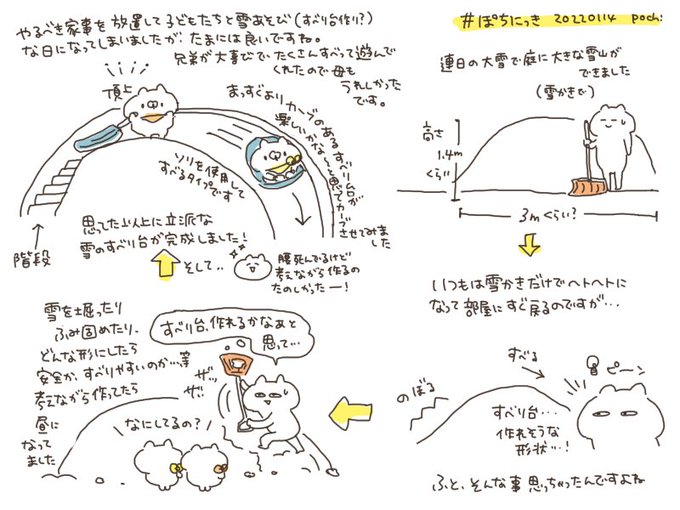 #ぽちにっき 20220114 poch:
連日の大雪で庭に大きな雪山が
できました
(雪かきで)
高さ
1.4m
くらい
3mくらい?
いつもは雪かきだけでヘトヘトに
なって部屋にすぐ戻るのですが…
ピーン
すべる
のぼる
すべり台…
作れそうな
形状…!
ふと、そんな事思っちゃったんですよね
すべり台、作れるかなぁと
思って…
ザッ
ザッ
なにしてるの?
雪を掘ったり
ふみ固めたり、
どんな形にしたら
安全か、すべりやすいのか…等
考えながら作ってたら
昼に
なって
ました
そして…
腰死んでるけど
考えながら作るの
たのしかったー!
思った以上に立派な
雪のすべり台が完成しました!
階段
頂上
ソリを使用して
すべるタイプです
まっすぐよりカーブのあるすべり台が
楽しいかな〜と思ってカーブ
させてみました
やるべき家事を放置して子どもたちと雪あそび(すべり台作り?)
な日になってしまいましたが、たまには良いですね。
兄弟が大喜びで、たくさんすべって遊んで
くれたので母も
うれしかった
です。